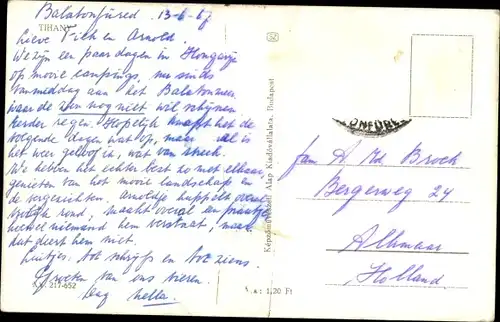 Balatonfüred 13-6-67
TIHANY
Lieve en Arnold.
We zijn een paar dagen in Hongarije
op mooie campings, nu sinds
vanmiddag aan het Balatonmeer
waar de zon nog niet wil schijnen
eerder regen. Hopelijk knapt het de
volgende dagen wat op, maar al is
het weer geloof ik, wat van streek.
We hebben het echter best zo met elkaar,
genieten van het mooie landschap en
de vergezichten. Arnoldje huppelt overal
vrolijk rond, maakt overal een praatje
hoewel niemand hem verstaat, maar
dat deert hem niet.
Luitjes. Tot schrijfs en tot ziens.
Groeten van ons vieren.
Dag Nella.
217-652
Képzőművészeti Alap Kiadóvállalata, Budapest
: 1,20 Ft
ONFÜRE
fam A. Rd Broek
Bergerweg 24
Alkmaar
Holland.